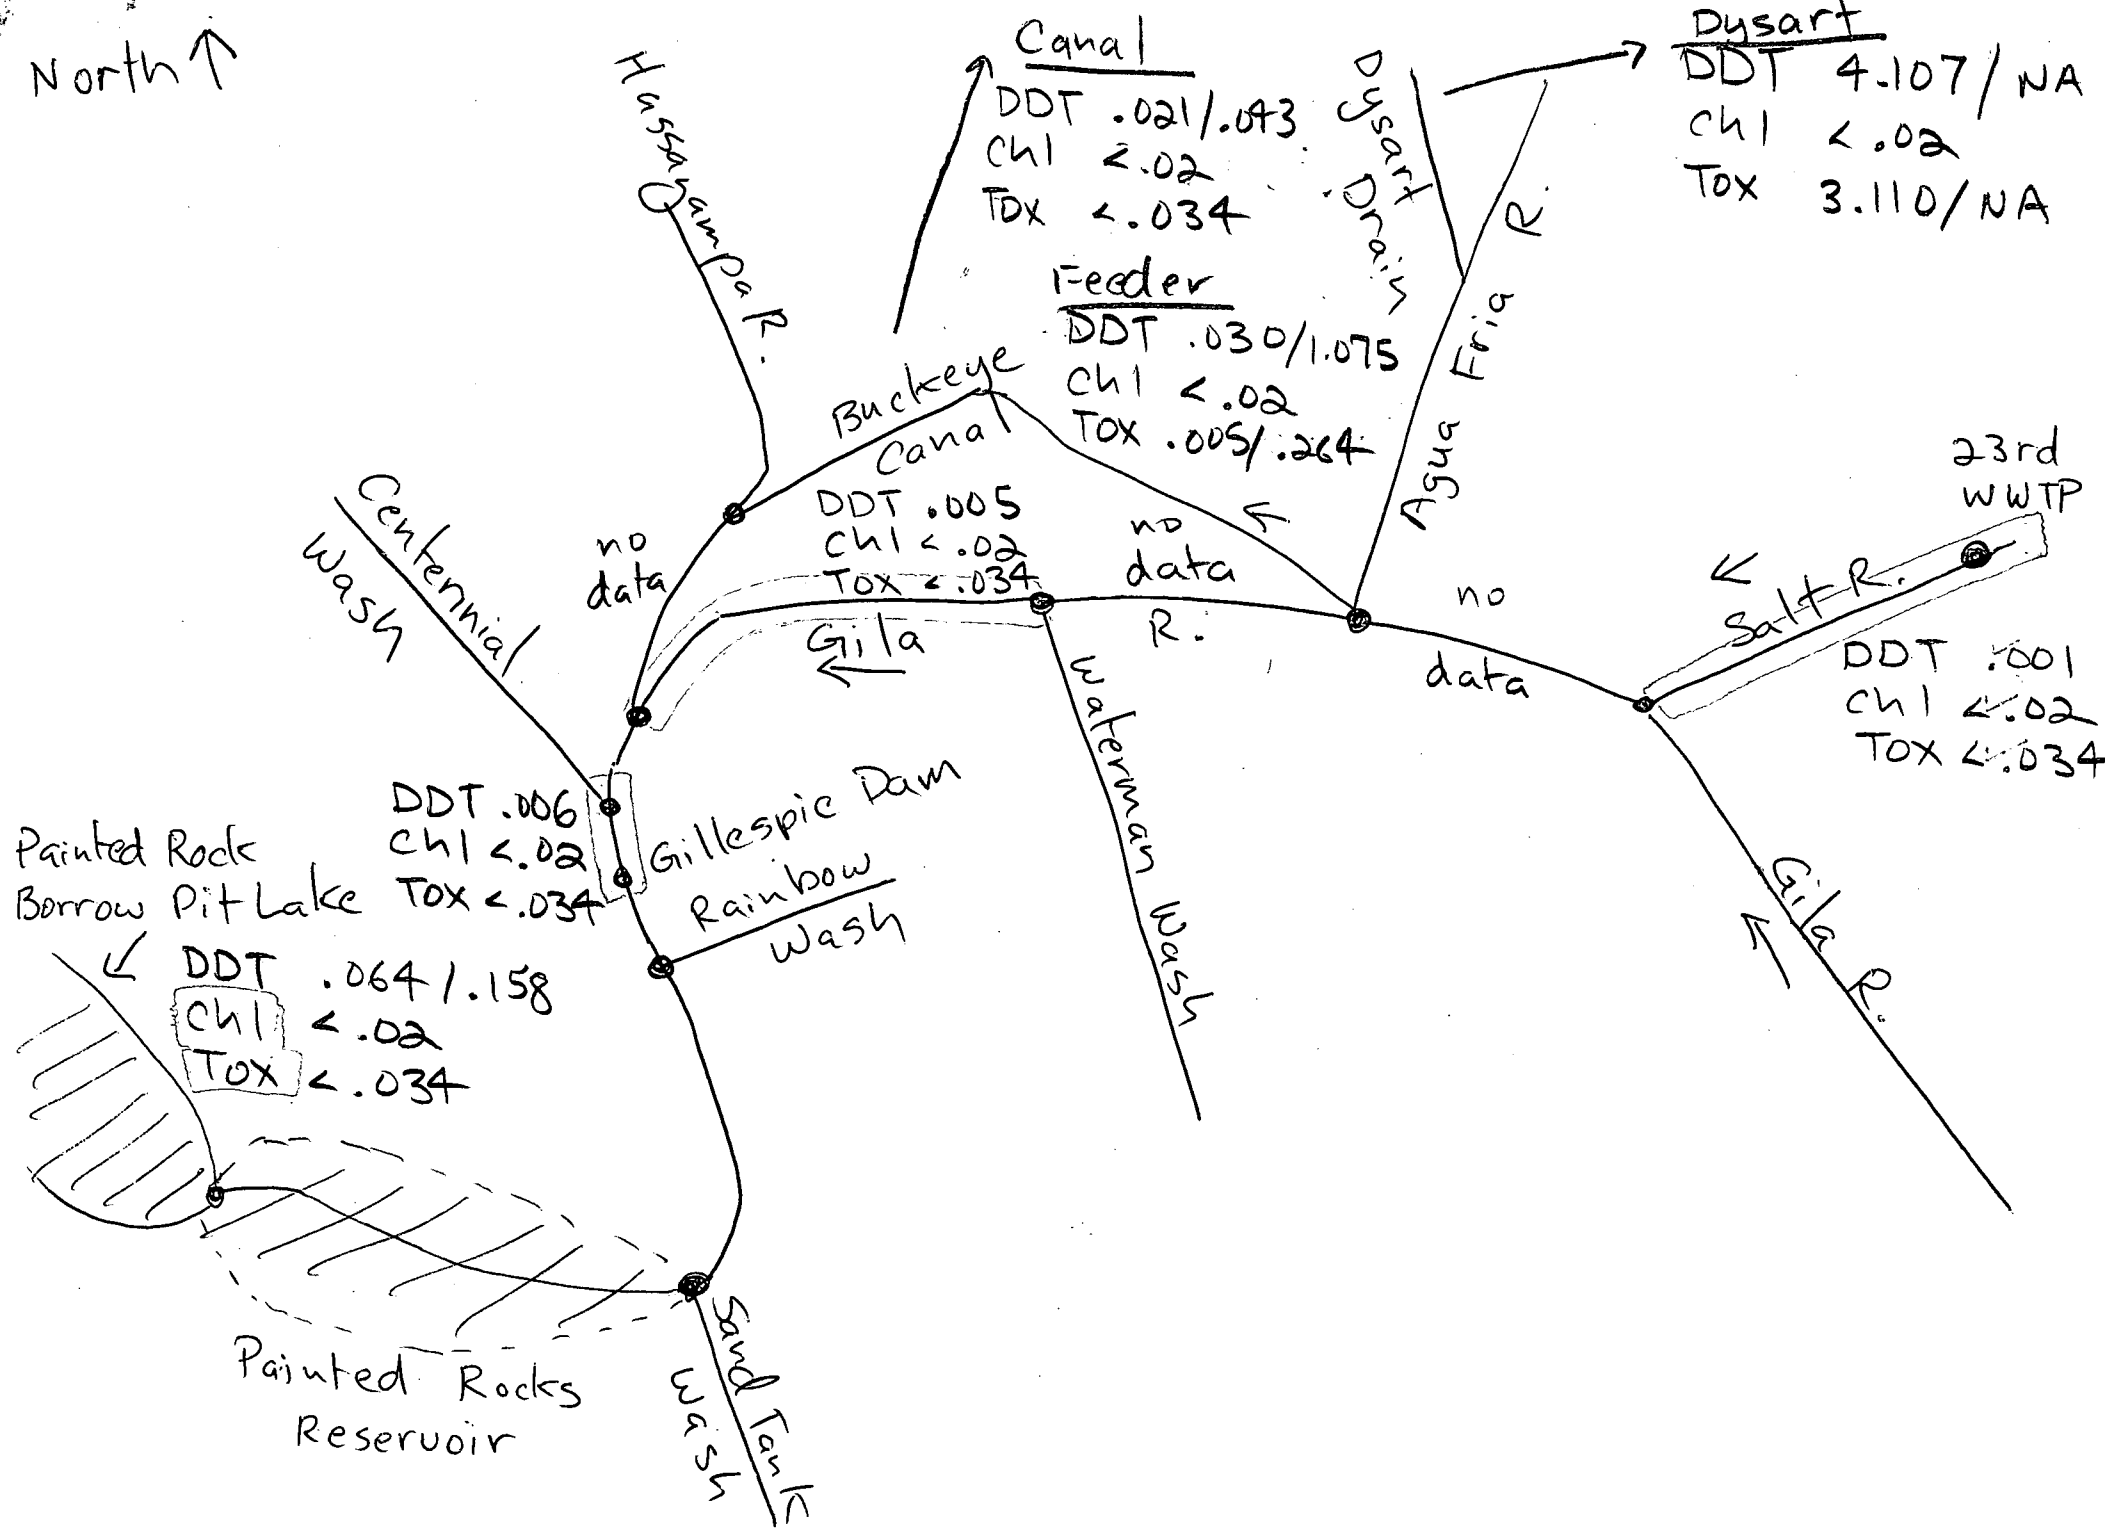 North ↑
Hassayampa R.
Canal
DDT .021/.043
Chl <.02
Tox <.034
Dysart Drain
Dysart
DDT 4.107/NA
Chl <.02
Tox 3.110/NA
Feeder
DDT .030/1.075
Chl <.02
Tox .005/.264
Agua Fria R.
Buckeye
Canal
23rd
WWTP
Centennial
Wash
no
data
DDT .005
Chl <.02
Tox <.034
no
data
Gila
R.
no
data
Salt R.
DDT .001
Chl <.02
Tox <.034
Waterman Wash
Gila R.
DDT .006
Chl <.02
Tox <.034
Gillespie Dam
Rainbow
Wash
Painted Rock
Borrow Pit Lake
DDT .064/.158
Chl <.02
Tox <.034
Painted Rocks
Reservoir
Sand Tank
Wash